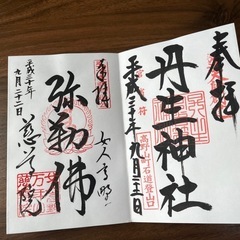 奉拝
丹生神社
平成三十年九月二十二日
高野山町石道登山口
奉拝
女人高野
弥勒佛
慈尊院
平成三十年
九月二十二日